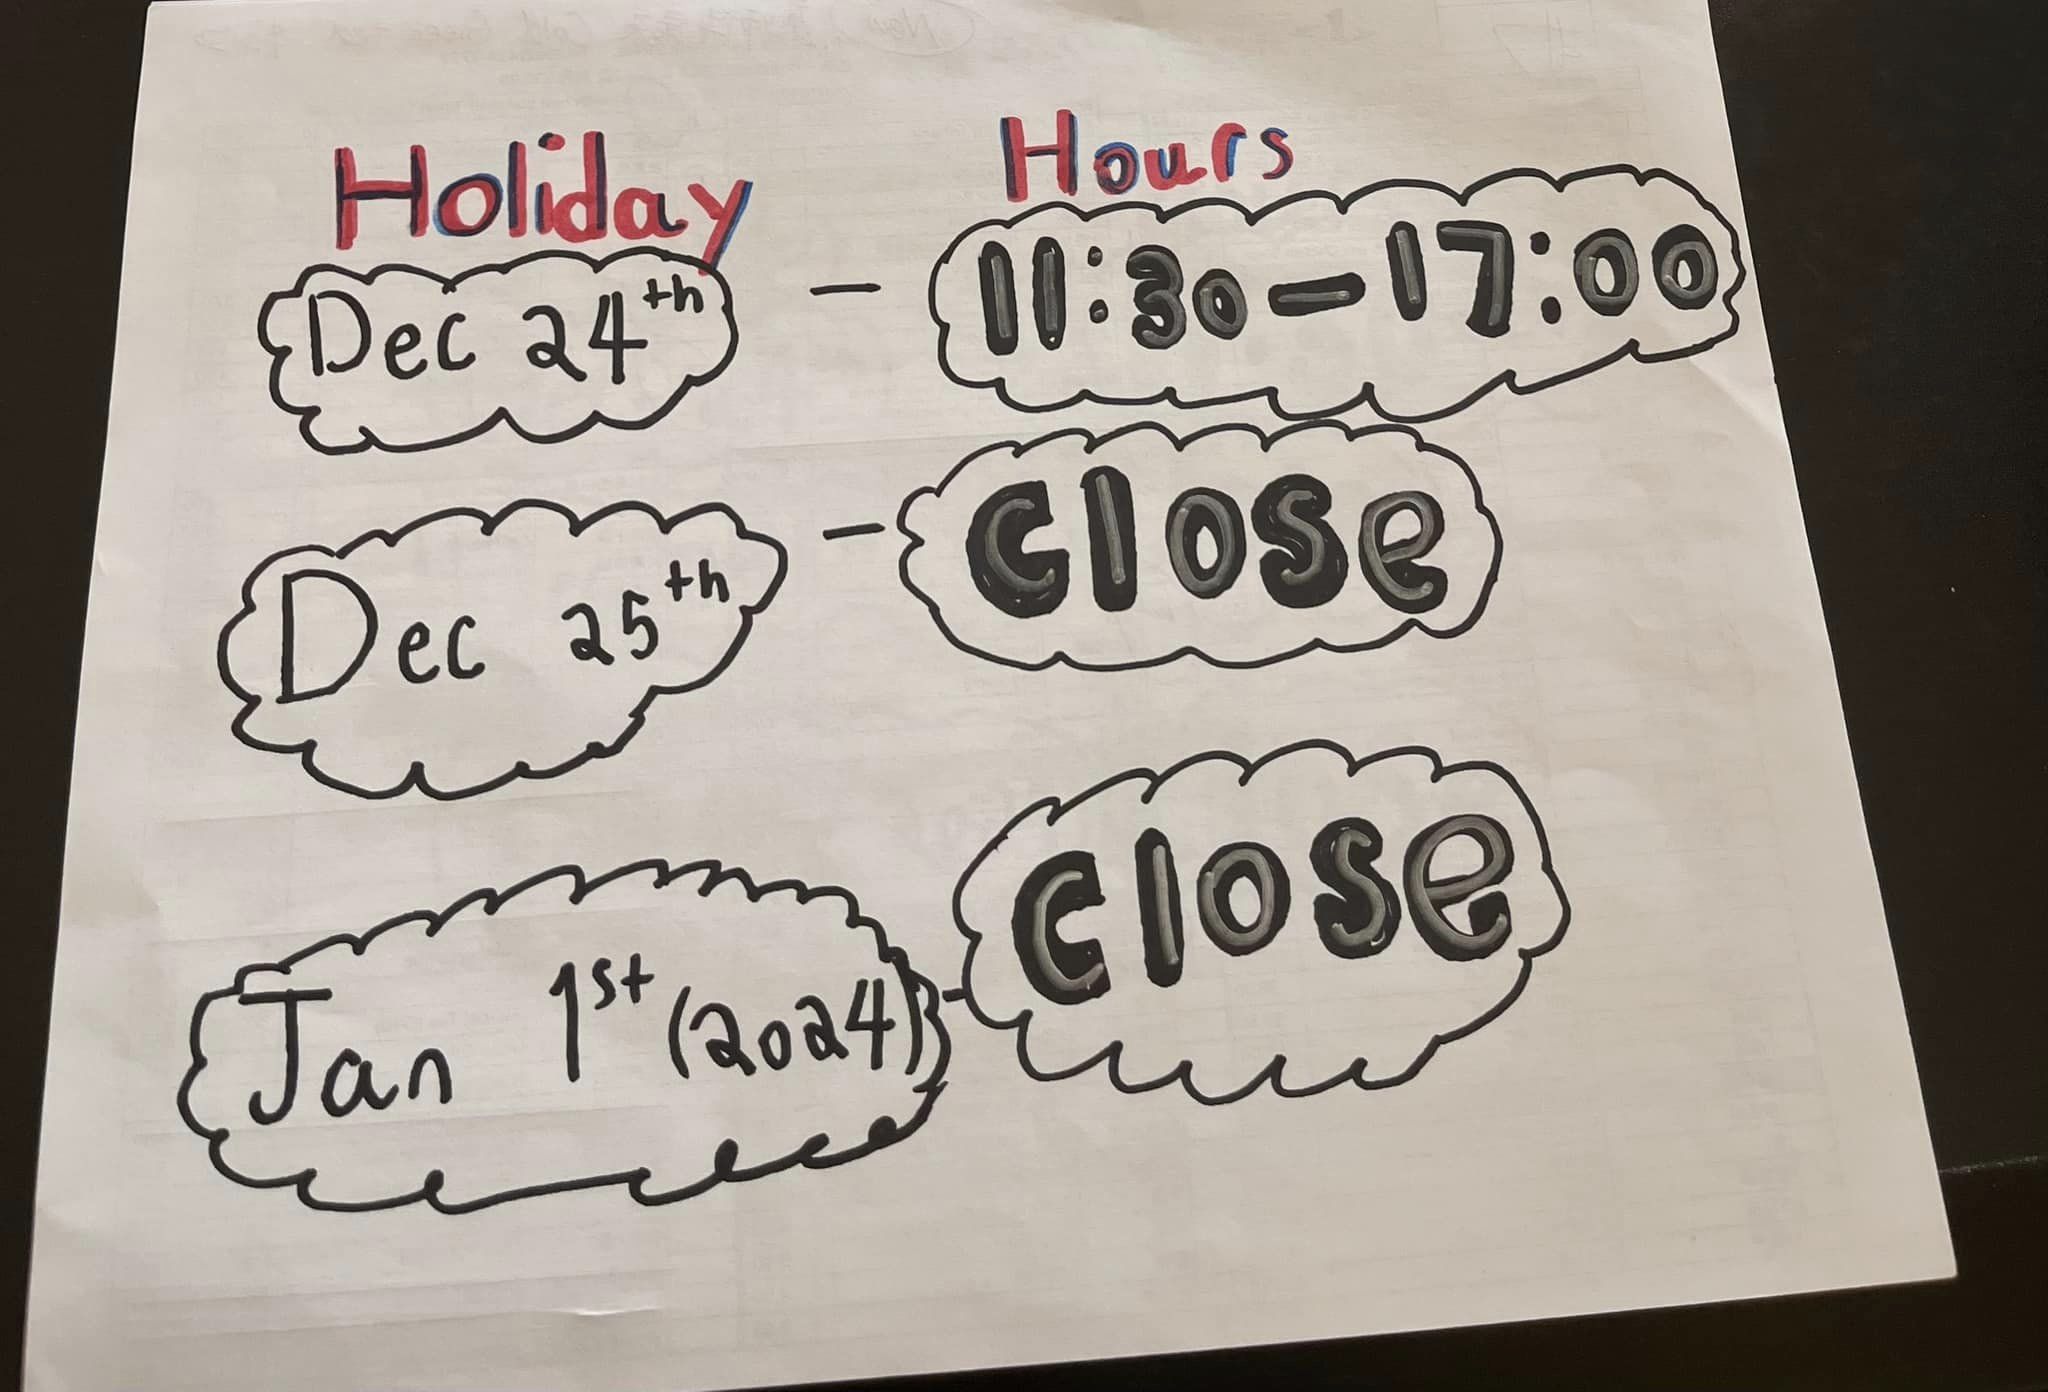 Holiday Hours
Dec 24th - 11:30-17:00
Dec 25th - close
Jan 1st (2024) - close